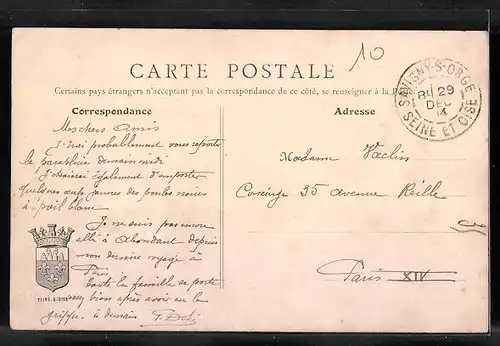 10
CARTE POSTALE
Certains pays étrangers n'acceptant pas la correspondance de ce côté, se renseigner à la
Correspondance
Adresse
SAVIGNY-S-ORGE
29
DEC
14
SEINE ET OISE
Mes chers Amis
J'irai probablement vous reporter
le parapluie demain midi
également d'emporter
quelques œufs jaunes des poules noires
à poil blanc
Je ne suis pas encore
allé à Abondant depuis
mon dernier voyage à
Paris
toute la famille se porte
assez bien après avoir eu la
grippe. à demain
Madame Vaclin
Concierge 35 avenue Reille
Paris XIV
SEINE-&-OISE